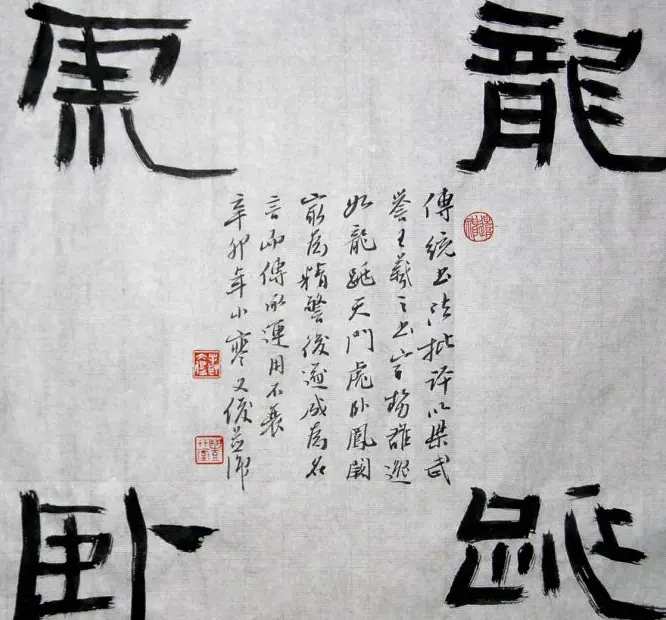 龍跳
虎卧
傳統書法批評以梁武
譽王羲之書字勢雄逸
如龍跳天門虎卧鳳闕
最為精警後遂成為名
言而傳承運用不衰
辛卯年小寒又俊